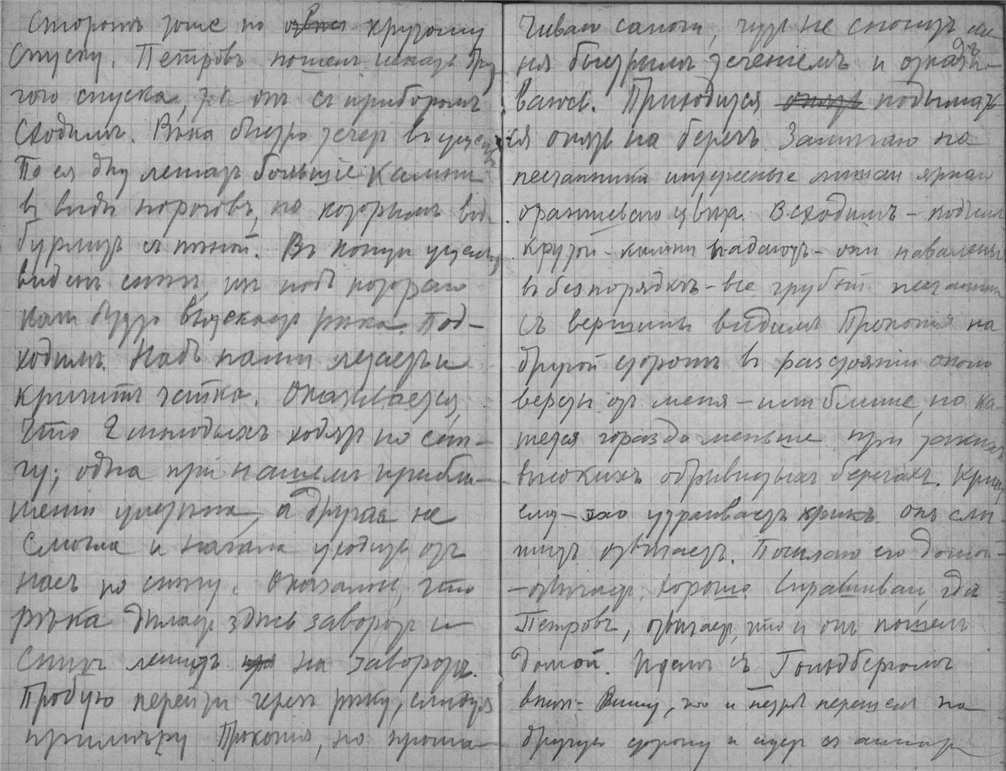 Сторонъ тоже по крутому
спуску. Петровъ пошелъ искать дру
гого спуска, онъ съ приборомъ
Сходимъ. Рѣка быстро течетъ въ ущельѣ
По ея дну лежатъ большіе камни
въ видѣ пороговъ, по которымъ вода
бурлитъ съ пѣной. Въ концѣ ущелья
видѣнъ снѣгъ, подъ которого
какъ будто вытекаетъ рѣка. Под-
ходимъ. Надъ нами летаетъ и
кричитъ чайка. Оказывается,
что 2 молодыхъ ходятъ по снѣ-
гу; одна при нашемъ прибли-
женіи улетѣла, а другая не
смогла и начала уходить отъ
насъ по снѣгу. Оказалось, что
рѣка дѣлаетъ здѣсь заворотъ и
снѣгъ лежитъ на заворотѣ.
Пробую перейти черезъ рѣку, слѣдуя
примѣру Прокопія, но прома-
чиваю сапоги, чуть не сноситъ ме
ня быстрымъ теченіемъ и отказы-
ваюсь. Приходится подымать
ся опять на берегъ. Замѣчаю на
песчаникѣ интересные лишаи ярко
оранжеваго цвѣта. Всходимъ – подъемъ
крутой – камни падаютъ – они навалены
въ безпорядкѣ – все грубый песчаникъ
Съ вершины видимъ Прокопія на
другой сторонѣ въ разстояніи около
версты отъ меня – или ближе, но ка
жется гораздо меньше при такихъ
высокихъ обрывистыхъ берегахъ. Кричу
ему – эхо крикъ онъ слы
шитъ отвѣчаетъ. Посылаю его домой
– отвѣчаетъ: хорошо. Спрашиваю, гдѣ
Петровъ, отвѣчаетъ, что и онъ пошелъ
домой. Идемъ съ Гольдбергомъ
Вижу, что и перешелъ на
другую сторону и идетъ съ